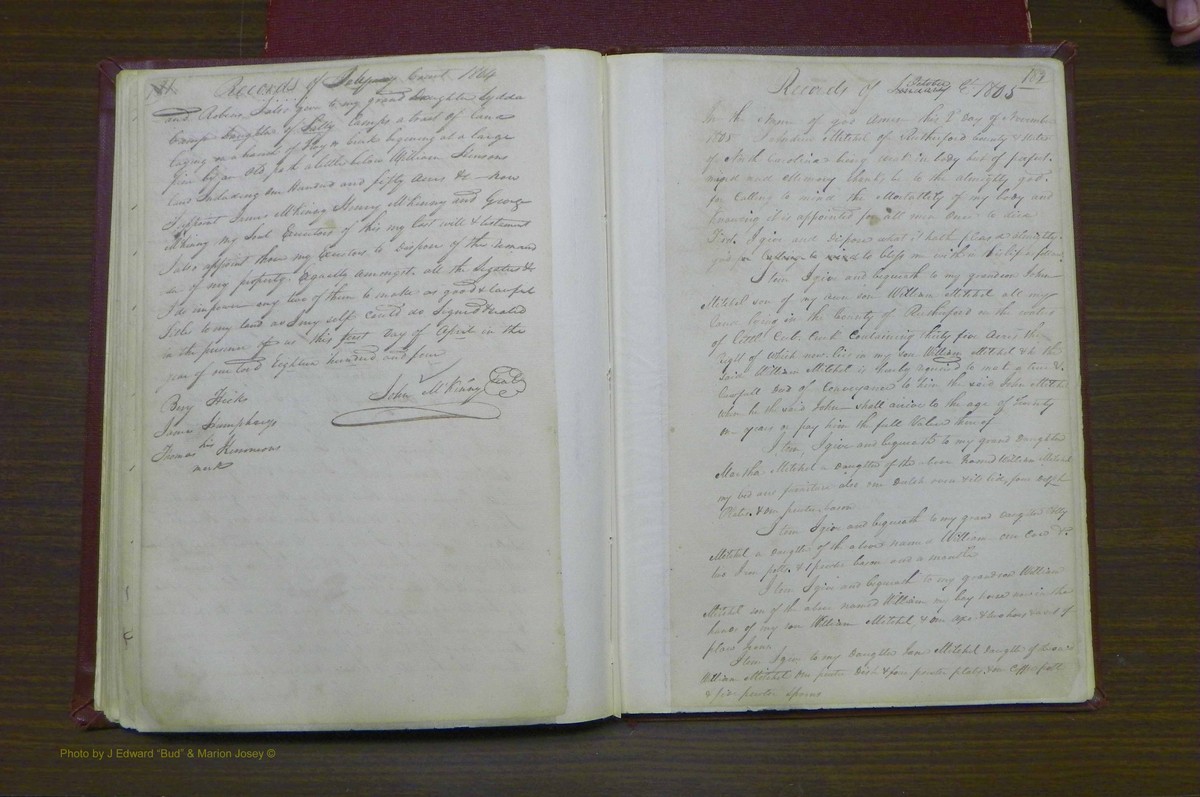 Records of July Court 1804
and Robins I also give to my grand Daughter Lydda
Camp Daughter of Sally Camp a tract of land
laying on a branch of begining at a large
on an Old path a little below William Simsons
land Including One Hundred and fifty Acres &c - Now
I appoint James McKinny Henry McKinny and George
McKinny my Sole Executors of this my last will & testament
I also appoint them my Executors to Dispose of the remaind
er of my property Equelly Amongst all the Legatees &c
I do impower any two of them to make as good & lawful
title to my land as I my self could do Signed & Sealed
in the presence of us this first Day of April in the
year of our Lord Eighteen hundred and four
John McKinny Seal
Berry Hicks
James Humphreys
Thomas his
mark
Records of October Ct. 1805
189
In the Name of god Amen this 2 Day of November
180 I Mitchel of Rutherford County & State
of North Carolina being weak in body but of perfect
mind and Memory thanks be to the almighty god
for Calling to mind the Mortallity of my body and
knowing it is appointed for all men Once to die
First I give and Dispose what it hath pleased almighty
god to bless me with in this life as follows
Item I give and bequeath to my grandson John
Mitchel son of my own son William Mitchel all my
land lying in the County of Rutherford on the waters
of Creek Containing thirty five Acres the
right of which now lies in my son William Mitchel & he the
said William Mitchel is hereby required to make a true &
lawfull Deed of Conveyance to him the said John Mitchel
when he the said John shall arive to the age of Twenty
One years or pay him the full Value thereof
Item I give and bequeath to my grand Daughter
Martha Mitchel a Daughter of the above Named William Mitchel
my bed and furniture also one Dutch oven & its lid, four
Plates & one pewter bason
Item I give and bequeath to my grand Daughter
Mitchel a Daughter of the above name William one &
two Iron potts & 1 pewter bason and a
Item I give and bequeath to my grandson William
Mitchel son of the above named William my bay horse now in the
hands of my son William Mitchel, & one axe &
plow Irons
Item I give to my Daughter Jane Mitchel Daughter of
William Mitchel One pewter Dish & four pewter plates & one
& pewter spoons
Photo by J Edward "Bud" & Marion Josey ©